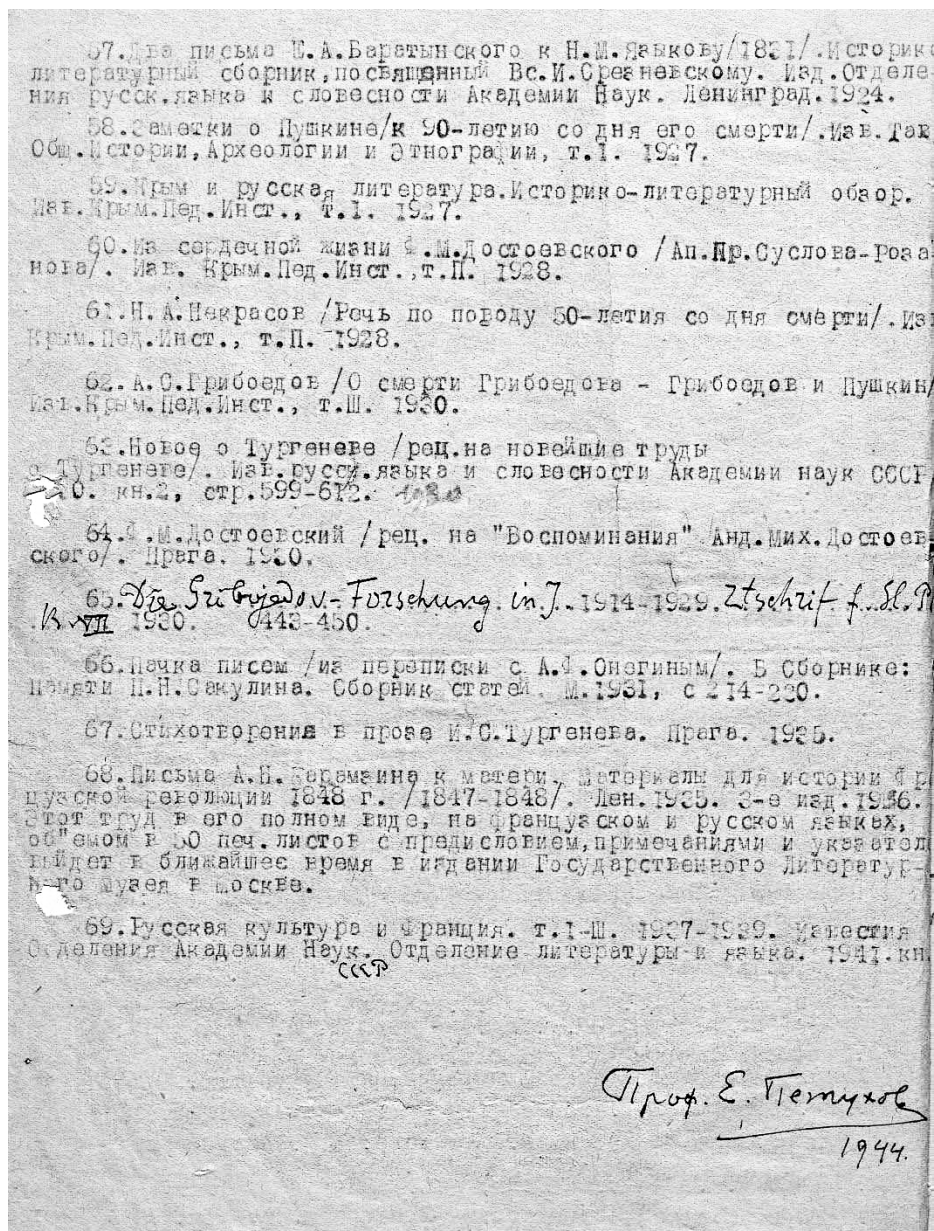 57.Два письма Е.А.Баратынского к Н.М.Языкову/1831/.Историко
литературный сборник,посвященный Вс.И.Срезневскому. Изд.Отделе-
ния русск.языка и словесности Академии Наук. Ленинград.1924.
58.Заметки о Пушкине/к 90-летию со дня его смерти/.Изв.Тав
Общ.Истории,Археологии и Этнографии, т.I. 1927.
59.Крым и русская литература.Историко-литературный обзор.
Изв.Крым.Пед.Инст., т.I. 1927.
60.Из сердечной жизни Ф.М.Достоевского /Ап.Пр.Суслова-Роза-
нова/. Изв. Крым.Пед.Инст.,т.П. 1928.
61.Н.А.Некрасов /Речь по поводу 50-летия со дня смерти/.Изв
Крым.Пед.Инст., т.П. 1928.
62.А.С.Грибоедов /О смерти Грибоедова - Грибоедов и Пушкин/
Изв.Крым.Пед.Инст., т.Ш. 1930.
63.Новое о Тургеневе /рец.на новейшие труды
о Тургеневе/. Изв.русск.языка и словесности Академии наук СССР,
кн.2, стр.599-612. 1930
64.Ф.М.Достоевский /рец. на "Воспоминания" Анд.Мих.Достоев-
ского/. Прага. 1930.
65.Die Gribojedov-Forschung in J. 1914-1929. Ztschrif. f. Sl. P
B. VII 1930. 443-450.
66.Пачка писем /из переписки с А.Ф.Онегиным/. В Сборнике:
Памяти П.Н.Сакулина. Сборник статей. М.1931, с 214-220.
67.Стихотворения в прозе И.С.Тургенева. Прага. 1935.
68.Письма А.Н.Карамзина к матери. Материалы для истории Фр
цузской революции 1848 г. /1847-1848/. Лен.1935. 3-е изд.1936.
Этот труд в его полном виде, на французском и русском языках,
об"емом в 50 печ.листов с предисловием,примечаниями и указател
выйдет в ближайшее время в издании Государственного Литератур-
ного музея в Москве.
69.Русская культура и Франция. т.I-Ш. 1937-1939. Известия
Отделения Академии Наук. Отделение литературы и языка. 1941.кн.
СССР
Проф. Е. Петухов
1944.